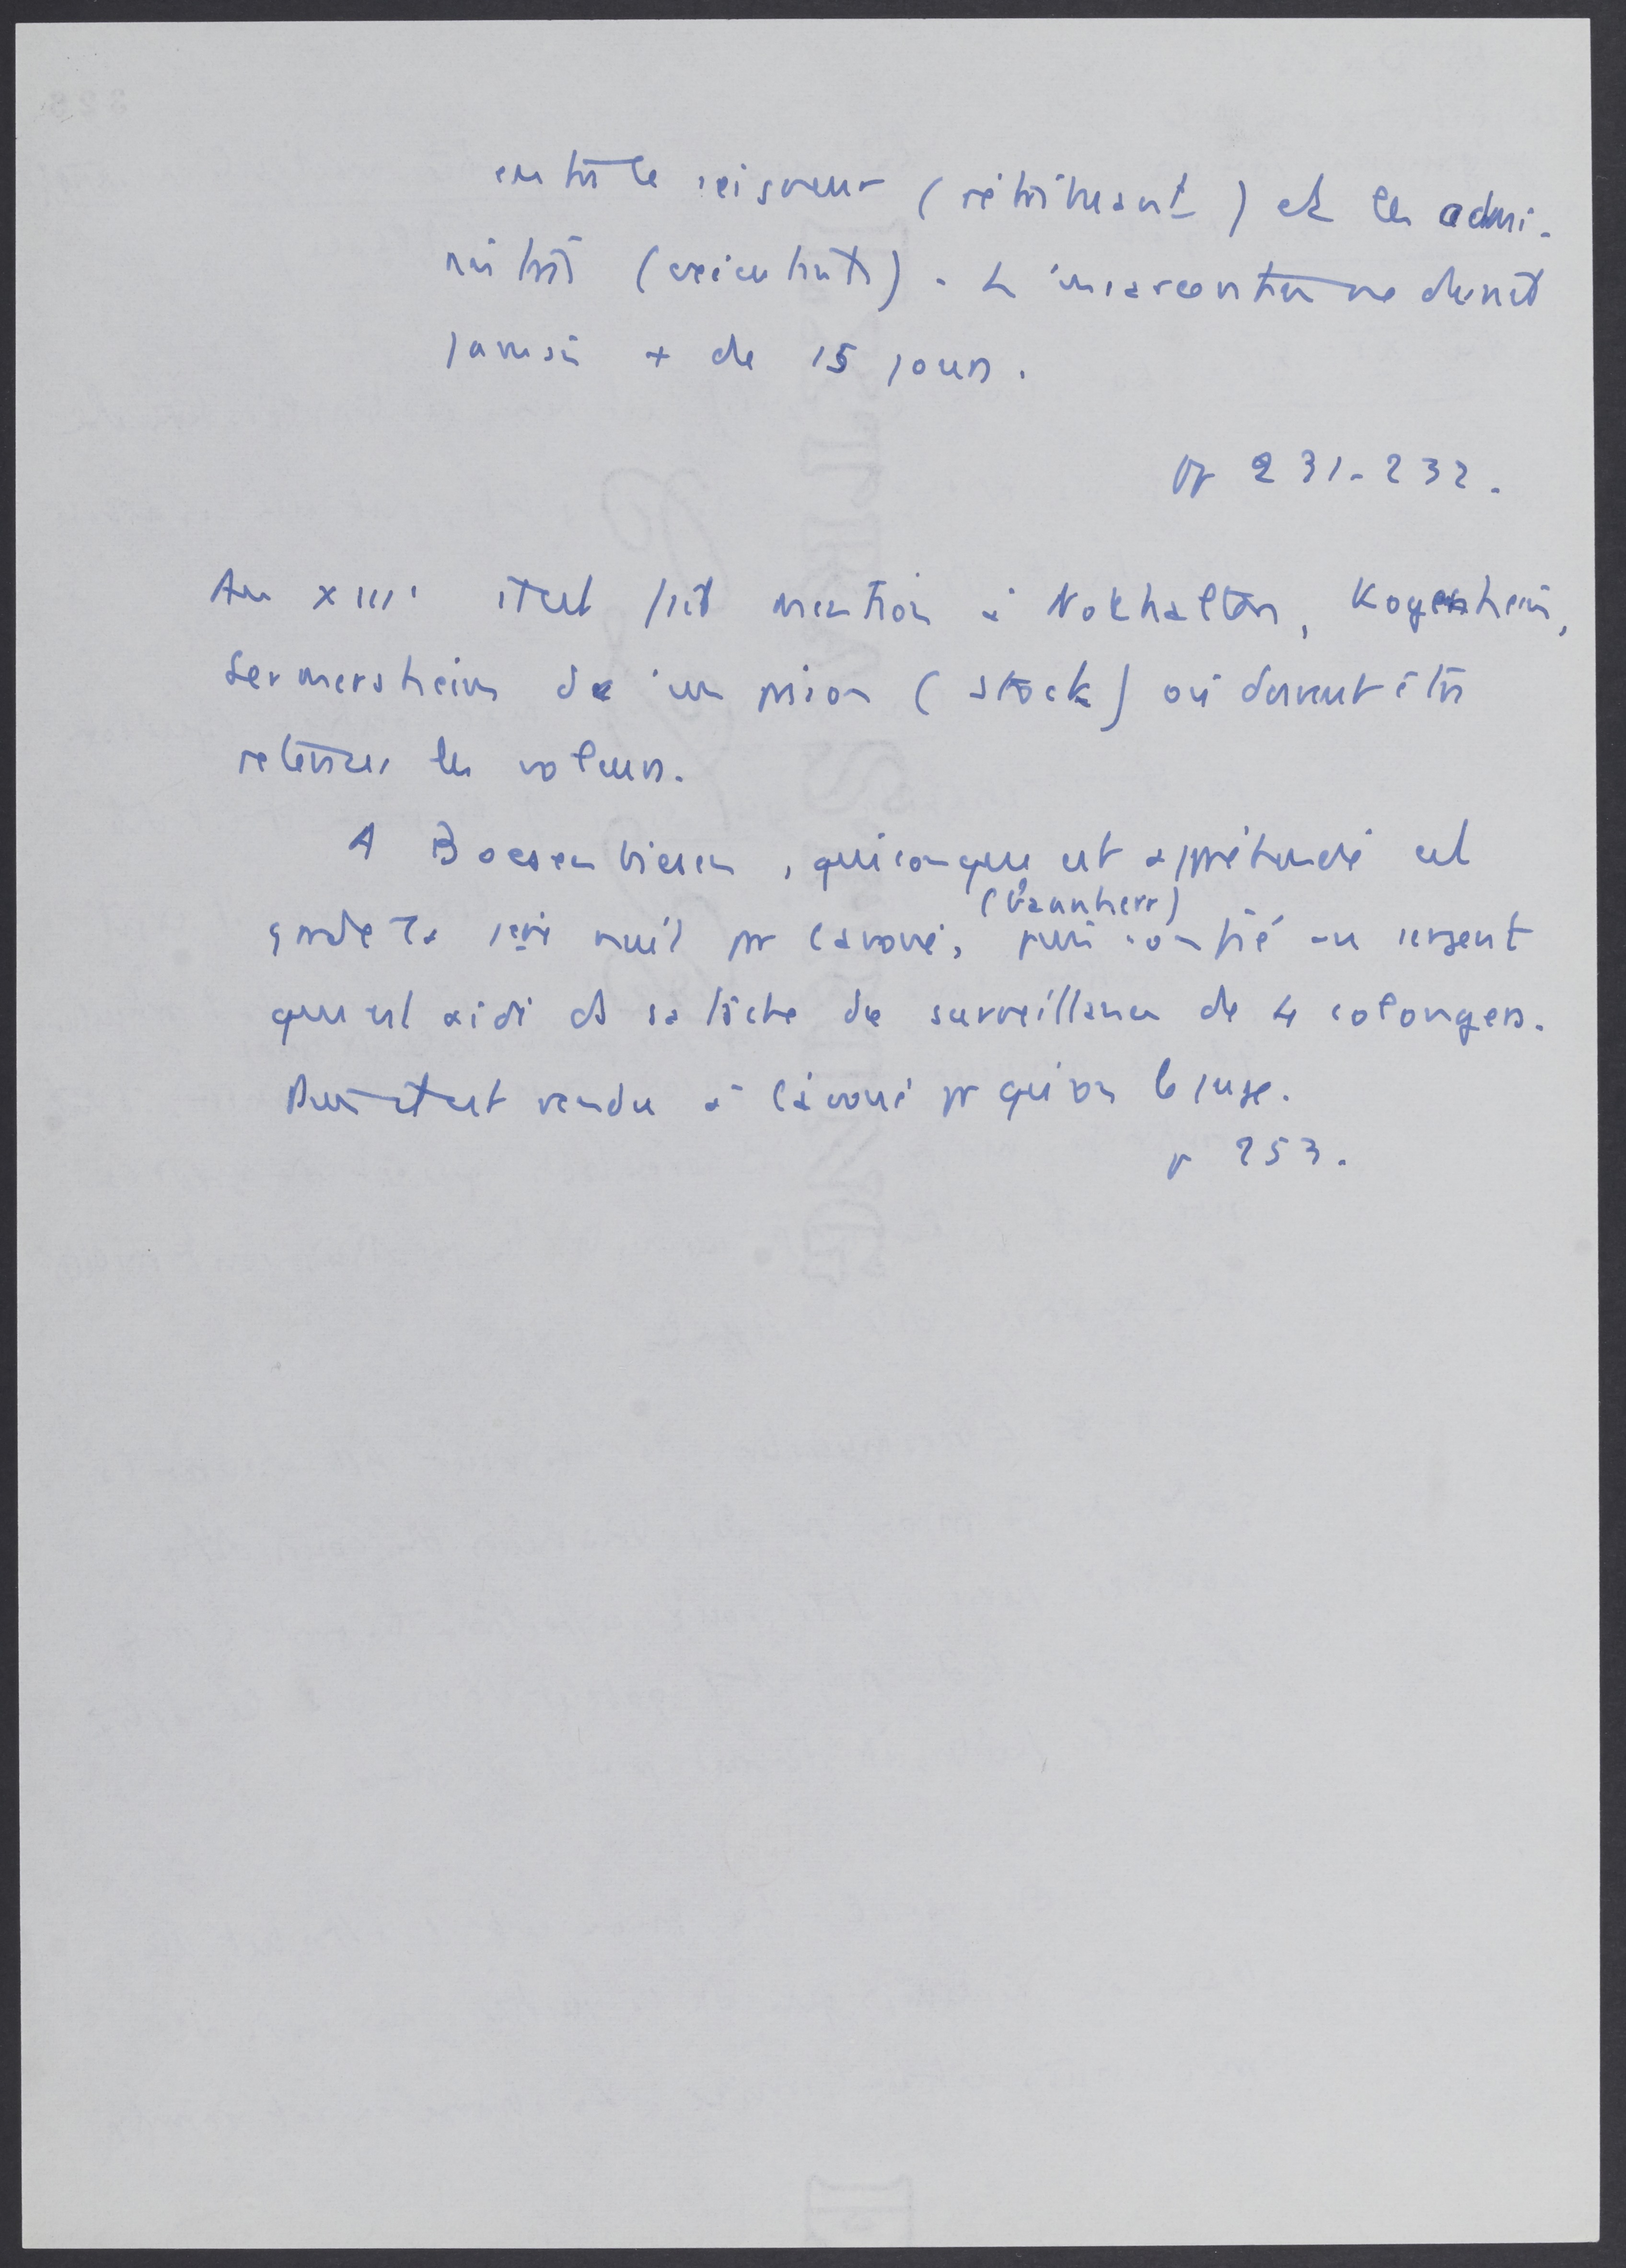 entre le seigneur (rétribuant) et les admi-
nistrés (exécutants). L'incarcération ne durait
jamais + de 15 jours.
pp 231-232.
Au XIIIe était fait mention à Nothalten, Kogenheim,
Sermersheim de un prison (stock) où devaient être
retenus les voleurs.
A Boesenbiesen, quiconque est appréhendé est
gardé la 1ère nuit pr l'avoué, (Bannherr) puis confié au sergent
qui est aidé ds sa tâche de surveillance de 4 colongers.
Puis était rendu à l'avoué pr qu'on le juge.
p 253.